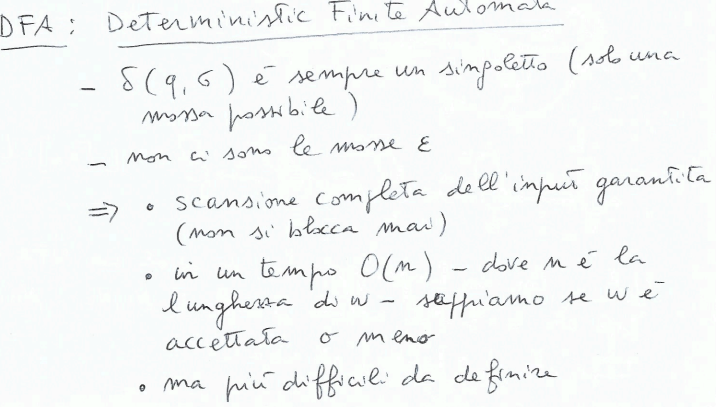 DFA : Deterministic Finite Automata
– δ(q, σ) è sempre un singoletto (solo una
mossa possibile)
– non ci sono le mosse ε
⇒ • scansione completa dell'input garantita
(non si blocca mai)
• in un tempo O(n) – dove n è la
lunghezza di w – sappiamo se w è
accettata o meno
• ma più difficili da definire